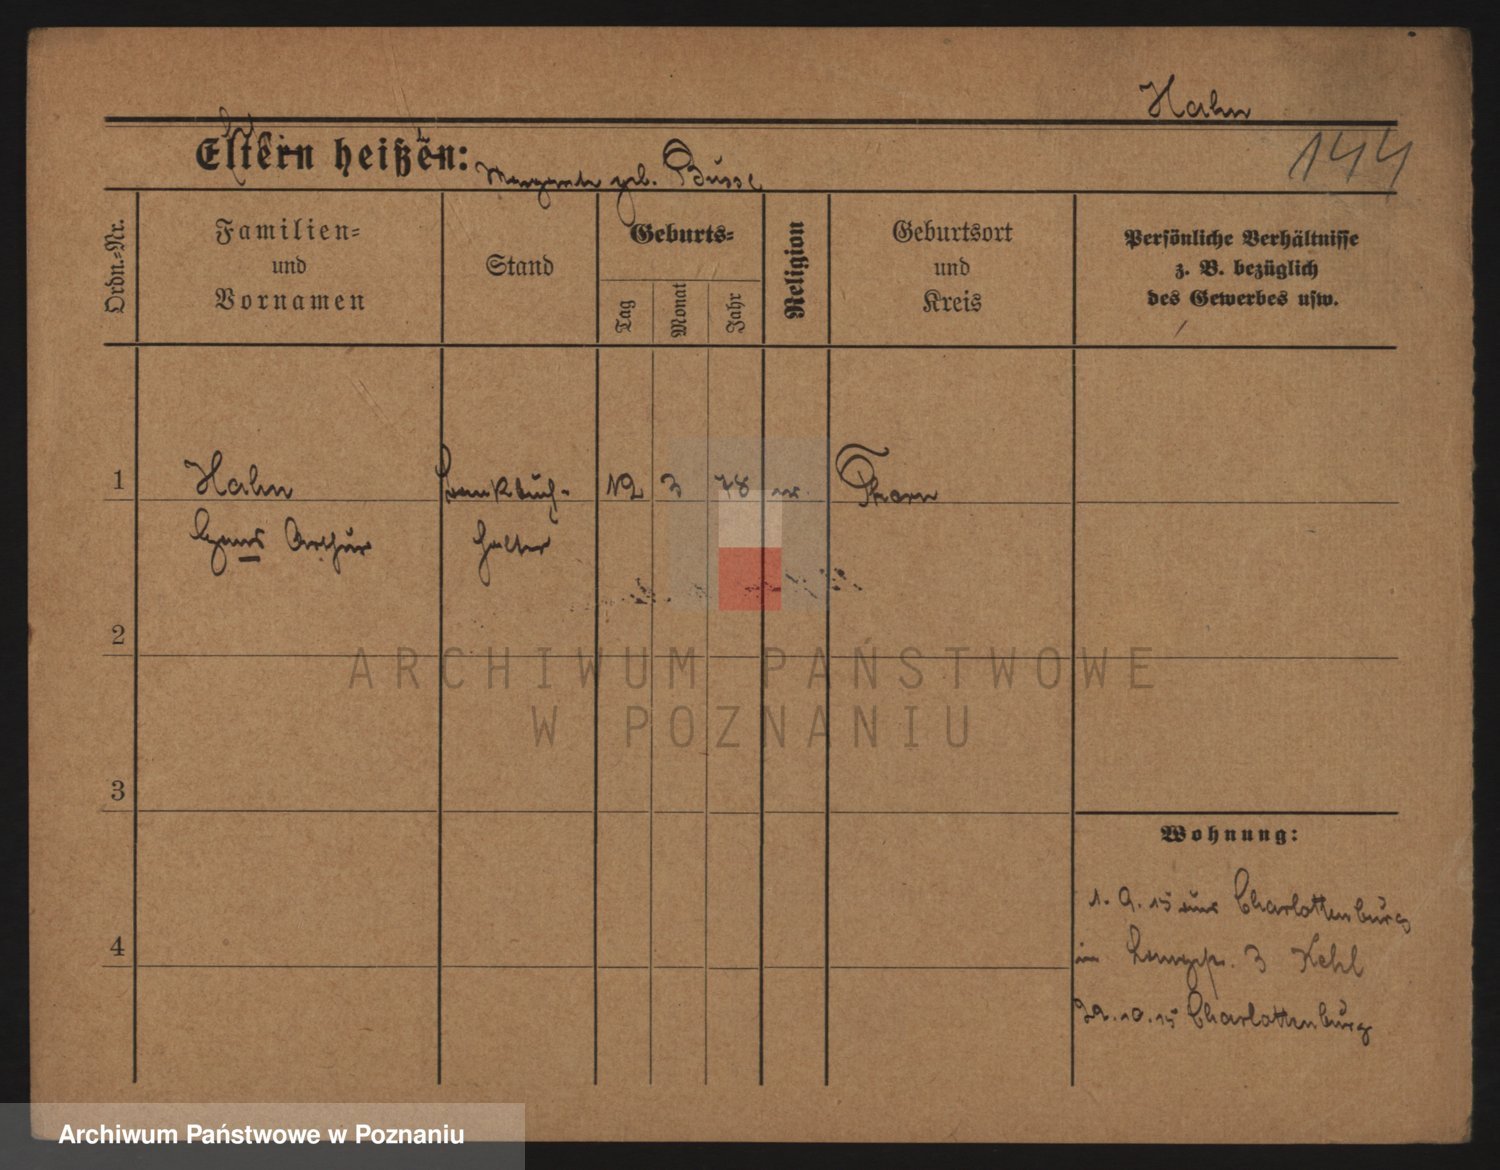 Hahn
144
Eltern heißen:
Margarete geb. Busse
Ordn.-Nr.
Familien-
und
Vornamen
Stand
Geburts-
Tag
Monat
Jahr
Religion
Geburtsort
und
Kreis
Persönliche Verhältnisse
z. B. bezüglich
des Gewerbes usw.
1
Hahn
Bankbuch-
12
3
78
Thorn
Hans Arthur
halter
2
ARCHIWUM PAŃSTWOWE
W POZNANIU
3
Wohnung:
1. 9. 15 aus Charlottenburg
4
in 3 Kehl
29.10.15 Charlottenburg
Archiwum Państwowe w Poznaniu